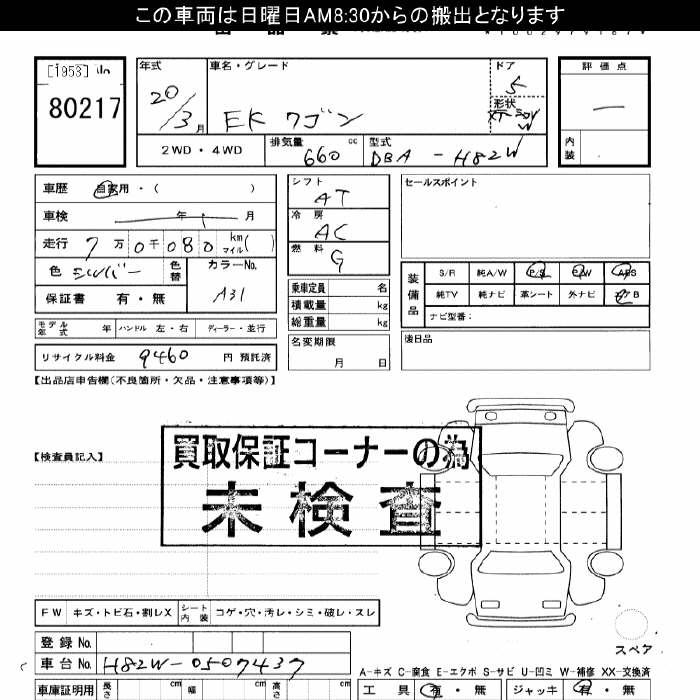 この車両は日曜日AM8:30からの搬出となります
[1953]
80217
年式
20/3月
車名・グレード
EK ワゴン
ドア
5
形状
評価点
―
内装
2WD・4WD
排気量 660 cc
型式 DBA-H82W
車歴 自家用・( )
車検 年 月
走行 7万0千080 km マイル( )
色 シルバー 色替
カラーNo. A31
保証書 有・無
モデル年式 年 ハンドル 左・右 ディーラー・並行
リサイクル料金 9460 円 預託済
シフト
AT
冷房
AC
燃料
G
乗車定員 名
積載量 kg
総重量 kg
名変期限
月 日
セールスポイント
装備品
S/R 純A/W P/S P/W ABS
純TV 純ナビ 革シート 外ナビ エアB
ナビ型番:
後日品
【出品店申告欄(不良箇所・欠品・注意事項等)】
【検査員記入】
買取保証コーナーの為
未検査
FW キズ・トビ石・割レX シート内装 コゲ・穴・汚レ・シミ・破レ・スレ
登録No.
車台No. H82W-0507437
車庫証明用 長さ cm 幅 cm 高さ cm
スペア
A-キズ C-腐食 E-エクボ S-サビ U-凹ミ W-補修 XX-交換済
工具 有・無 ジャッキ 有・無